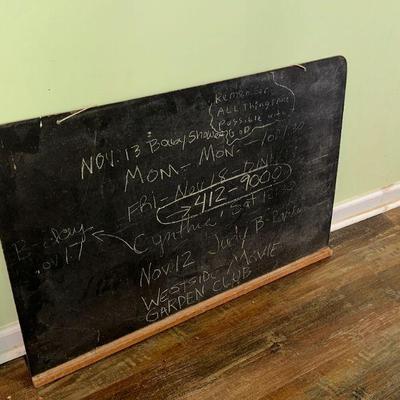 Remember
ALL Things are
Possible with
GOD
NOV. 13 Baby Shower
MOM- MON-
FRI- Nov 18-
412-9000
B-day
Nov 17
Cynthia Sat
Nov. 12 Judy B-
WESTSIDE MOVIE
GARDEN CLUB